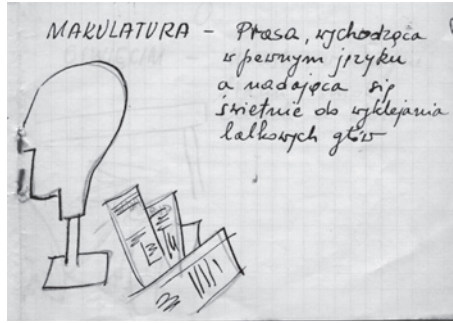 MAKULATURA - Prasa, wychodząca
w pewnym języku
a nadająca się
świetnie do wyklejania
lalkowych głów